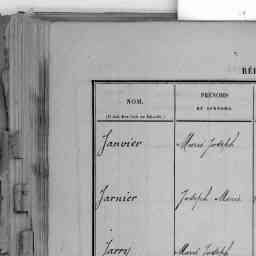 RÉP
NOM.
PRÉNOMS
ET SURNOMS.
Janvier Marie Joseph
Jarnier Joseph Marie
Jarry Marie Joseph